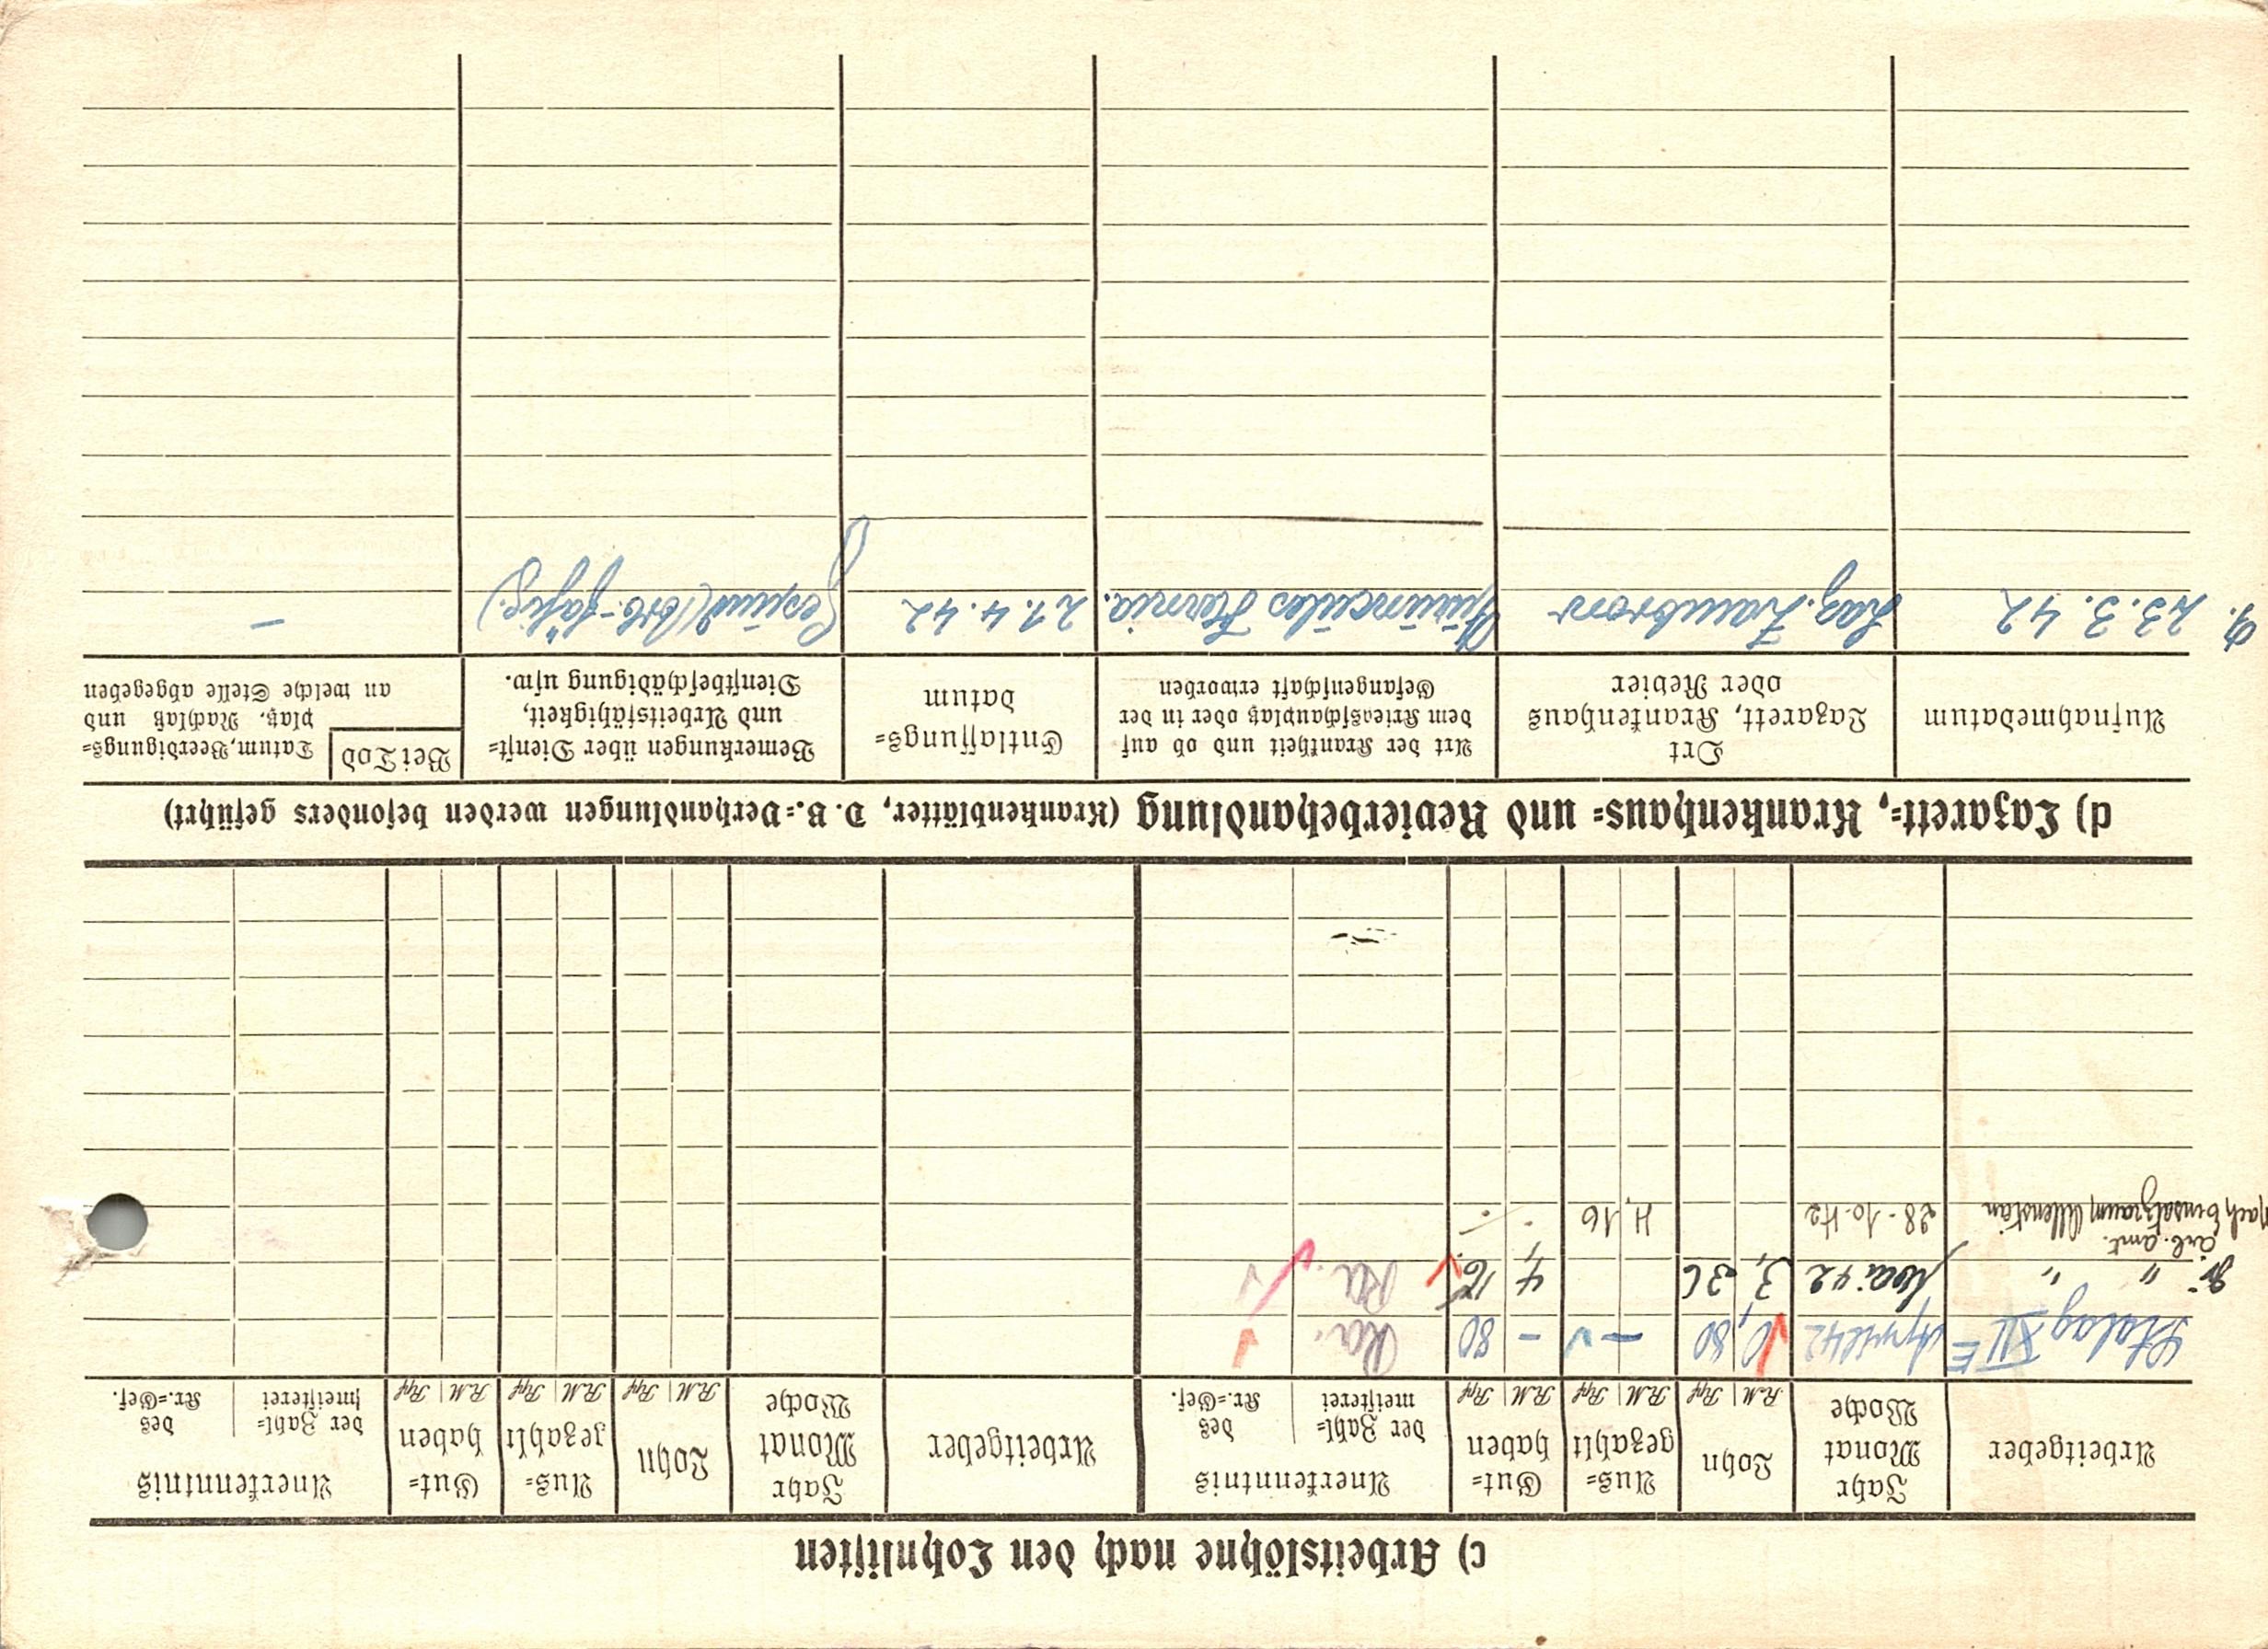 c) Arbeitslöhne nach den Lohnlisten
Arbeitgeber | Jahr Monat Woche | Lohn RM Rpf | Aus=gezahlt RM Rpf | Gut=haben RM Rpf | Anerkenntnis der Zahl=meisterei | des Kr.=Gef. | Arbeitgeber | Jahr Monat Woche | Lohn RM Rpf | Aus=gezahlt RM Rpf | Gut=haben RM Rpf | Anerkenntnis der Zahl=meisterei | des Kr.=Gef.
Stalag XII E April 42 0, 80 – – 80 Ra.
" " Mai 42 3, 36 4, 16 Ra.
arb. amt.
nach Einsatzraum Allenstein 28-10-42 4, 16
d) Lazarett=, Krankenhaus= und Revierbehandlung (Krankenblätter, D. B.=Verhandlungen werden besonders geführt)
Aufnahmedatum | Ort Lazarett, Krankenhaus oder Revier | Art der Krankheit und ob auf dem Kriegsschauplatz oder in der Gefangenschaft erworben | Entlassungs=datum | Bemerkungen über Dienst= und Arbeitsfähigkeit, Dienstbeschädigung usw. | Bei Tod Datum, Beerdigungs=platz, Nachlaß und an welche Stelle abgegeben
23. 3. 42 Laz. Zambrow Hernia. 21. 4. 42 Gesund (arb.-fähig.) –